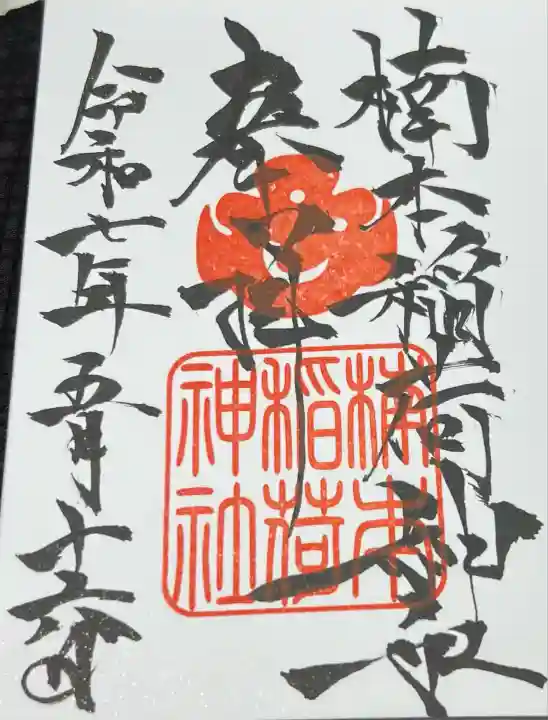 楠本稲荷神社
奉拝
令和七年五月十六日
楠本
稲荷
神社